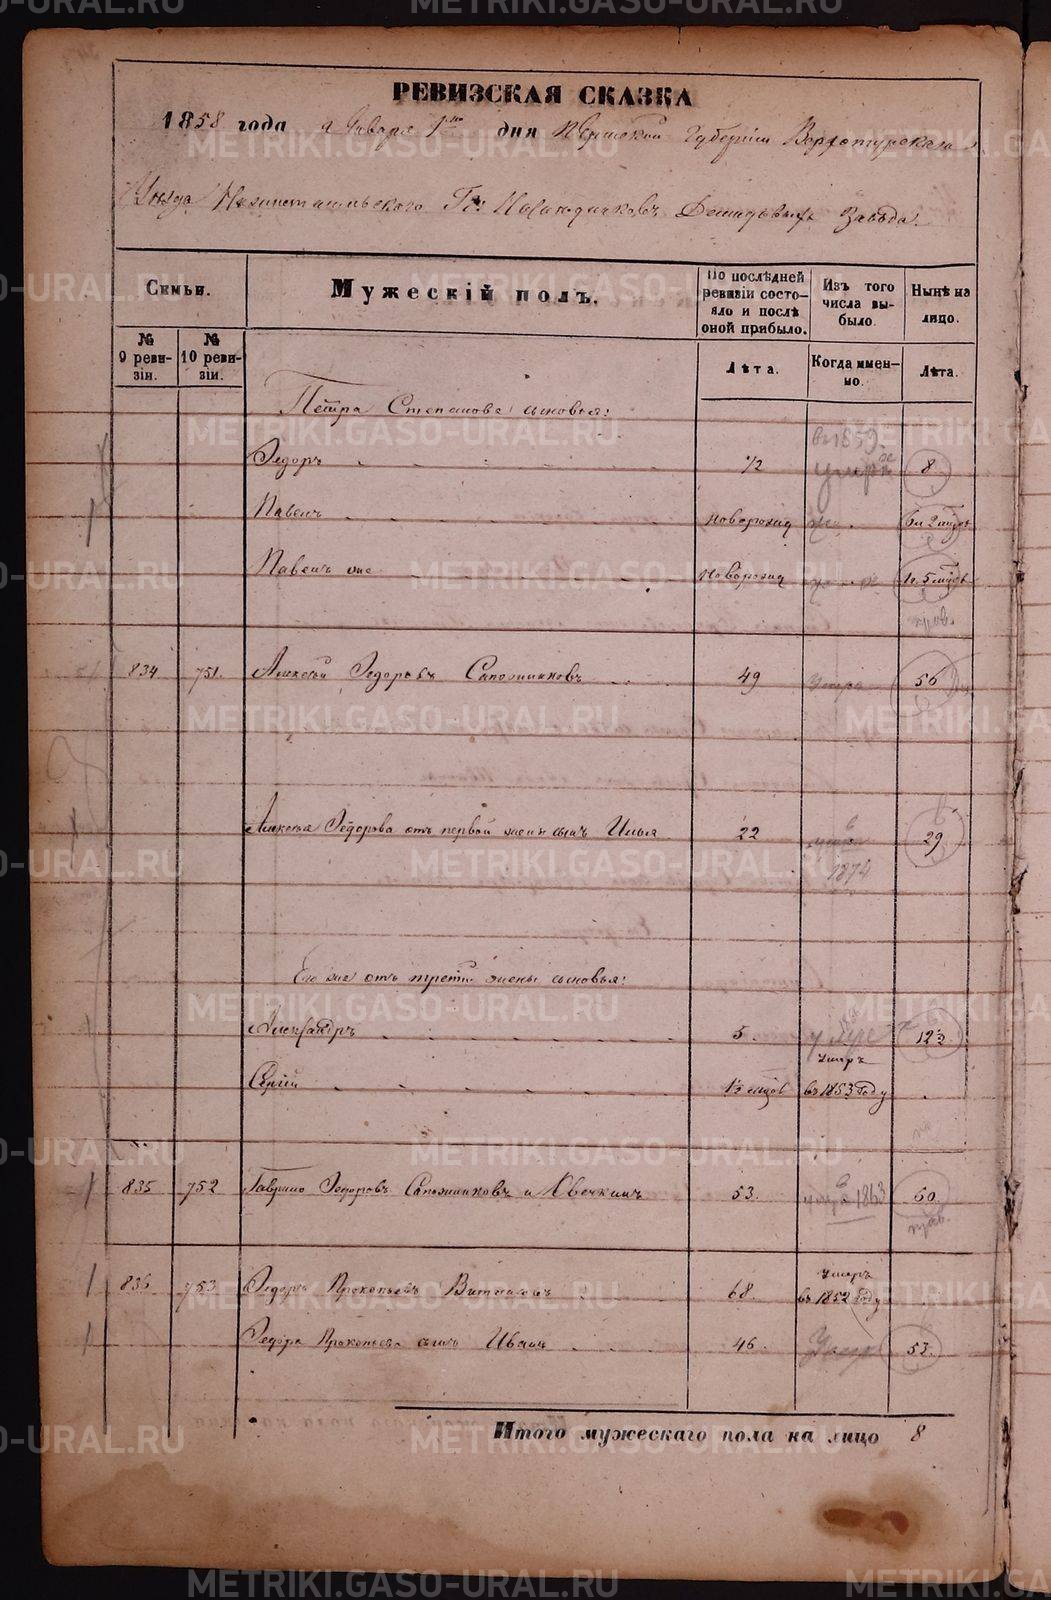 РЕВИЗСКАЯ СКАЗКА
1858 года Января 1го дня Пермской Губерніи Верхотурскаго
Уѣзда Нижнетагильского Гг. Наслѣдниковъ Демидовыхъ Завода.
Семьи.
№ 9 ревизіи.
№ 10 ревизіи.
Мужескій полъ.
По послѣдней ревизіи состояло и послѣ оной прибыло.
Лѣта.
Изъ того числа выбыло.
Когда именно.
Нынѣ на лицо.
Лѣта.
Петра Степанова сыновья:
Федоръ 1/2 въ 1859. умеръ 8
Павелъ новорожд 2
Павелъ же новорожд 5
834 751. Алексѣй Федоровъ Сапожниковъ 49 умеръ 56
Алексѣя Федорова отъ первой жены сынъ Илья 22 1874 29
Его же отъ третьей жены сыновья:
Александръ 5. 12½
Сергій 1½ мѣсяц умеръ въ 1853 году
835 752 Гаврило Федоровъ Сапожниковъ и Овечкинъ 53. 1863 60.
836 753 Федоръ Прокопьевъ 68. умеръ въ 1852 году
Федора Прокопьева сынъ Иванъ 46. Умеръ 53.
Итого мужескаго пола на лицо 8
METRIKI.GASO-URAL.RU